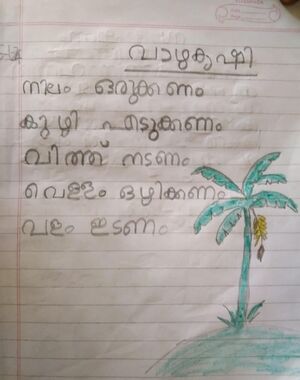 വാഴകൃഷി
നിലം ഒരുക്കണം
കുഴി എടുക്കണം
വിത്ത് നടണം
വെള്ളം ഒഴിക്കണം
വളം ഇടണം